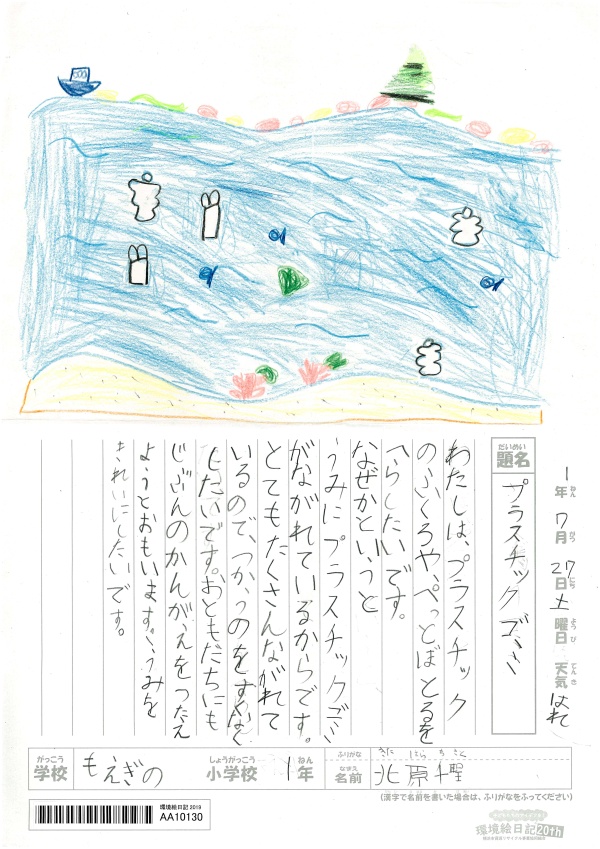 1年7月27日土曜日 天気はれ
ねん がつ にち ようび てんき
だいめい
題名 プラスチックゴミ
わたしは、プラスチック
のふくろや、ぺっとぼとるを
へらしたいです。
なぜかというと
うみにプラスチックゴミ
がながれているからです。
とてもたくさんながれて
いるので、つかうのをすくなく
したいです。おともだちにも
じぶんのかんがえをつたえ
ようとおもいます。うみを
きれいにしたいです。
がっこう しょうがっこう ねん ふりがな きた はら
学校 もえぎの 小学校 1年 なまえ 名前 北原
(漢字で名前を書いた場合は、ふりがなをふってください)
環境絵日記 2019
AA10130
環境絵日記20th